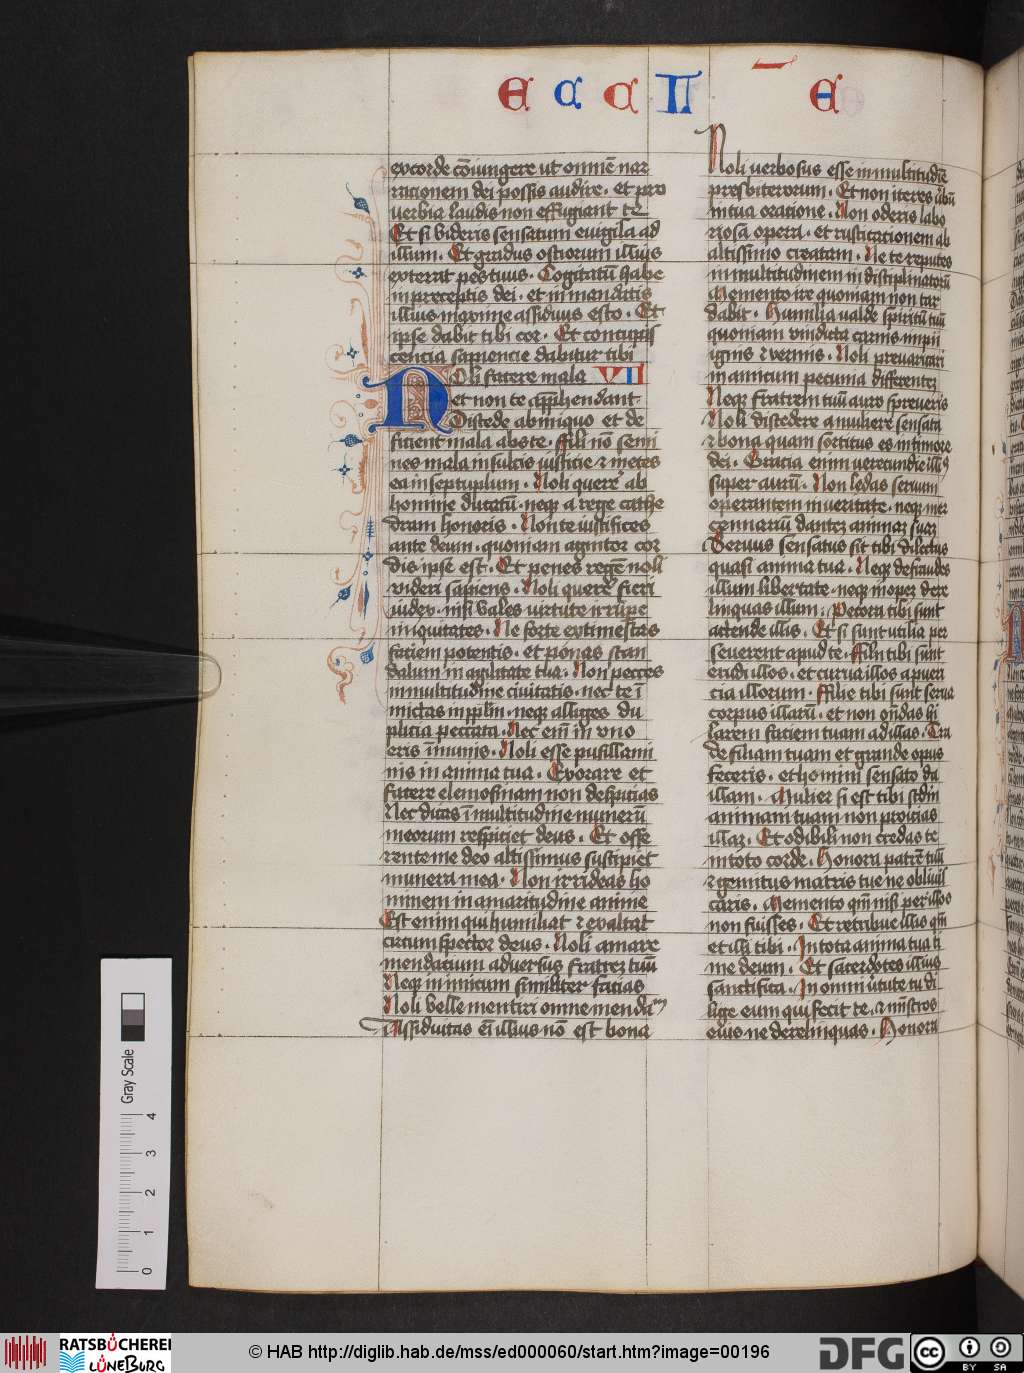 E C C Π E
ex corde coniungere ut omnē nar
rationem dei possis audire · et pro
verbia laudis non effugiant te
Et si videris sensatum evigila ad
illum · Et gradus ostiorum illius
exterat pes tuus · Cogitatū habe
in preceptis dei · et in mandatis
illius maxime assiduus esto · Et
ipse dabit tibi cor · Et concupis
cencia sapiencie dabitur tibi
Noli facere mala VII
et non te apprehendant
Discede ab iniquo et de
ficient mala abs te · Fili nō semi
nes mala in sulcis iusticie ⁊ metes
ea in septuplum · Noli querē ab
homine ducatū · neqꝫ a rege cathe
dram honoris · Non te iustifices
ante deum · quoniam agnitor cor
dis ipse est · Et penes regē noli
videri sapiens · Noli querē fieri
iudex · nisi vales virtute irrūpe
iniquitates · Ne forte extimescas
faciem potentis · et ponas scan
dalum in agilitate tua · Non pecces
in multitudine civitatis · nec te ī
mictas in ppl̄m · neqꝫ alliges du
plicia peccata · Nec em̄ in uno
eris īmunis · Noli esse pusillani
mis in anima tua · Exorare et
facere elemosinam non despicias
Nec dicas ī multitudine munerū
meorum respiciet deus · Et offe
rente me deo altissimus suscipiet
munera mea · Non irrideas ho
minem in amaritudine anime
Est enim qui humiliat ⁊ exaltat
circumspector deus · Noli amare
mendacium adversus fratreꝫ tuū
Neqꝫ in amicum similiter facias
Noli velle mentiri omne menda
Assiduitas ei illius nō est bona
Noli verbosus esse in multitudīe
presbiterorum · Et non iteres ūbū
in tua oratione · Non oderis labo
riosa opera · et rusticationem ab
altissimo creatam · Ne te reputes
in multitudinem indisciplinatorū
Memento ire quoniam non tar
dabit · Humilia valde spiritū tuū
quoniam vindicta carnis impii
ignis ⁊ vermis · Noli prevaricari
in amicum pecunia differenteꝫ
Neqꝫ fratrem tuū auro spreveris
Noli discedere a muliere sensata
⁊ bona quam sortitus es in timore
dei · Gracia enim verecundie illi⁹
super aurū · Non ledas servum
operantem in veritate · neqꝫ mer
cennariū danteꝫ animaꝫ suaꝫ
Servus sensatus sit tibi dilectus
quasi anima tua · Neqꝫ defraudes
illum libertate · neqꝫ inopeꝫ dere
linquas illum · Pecora tibi sunt
actende illis · Et si sunt utilia per
severent apud te · Filii tibi sunt
erudi illos · et curva illos a pueri
cia illorum · Filie tibi sunt serva
corpus illarū · et non on̄das hi
larem faciem tuam ad illas · Tra
de filiam tuam et grande opus
feceris · et homini sensato da
illam · Mulier si est tibi scd̄m
animam tuam non proicias
illaꝫ · Et odibili non credas te
in toto corde · Honora patrē tuū
⁊ gemitus matris tue ne oblivis
caris · Memento qm̄ nisi per illos
non fuisses · Et retribue illis qm̄
et illi tibi · In tota anima tua ti
me deum · Et sacerdotes illius
sanctifica · In omni ūtute tua di
lige eum qui fecit te · ⁊ mīstros
eius ne derelinquas · Honora
Gray Scale
0 1 2 3 4
RATSBÜCHEREI
LÜNEBURG
© HAB http://diglib.hab.de/mss/ed000060/start.htm?image=00196
DFG
cc BY SA